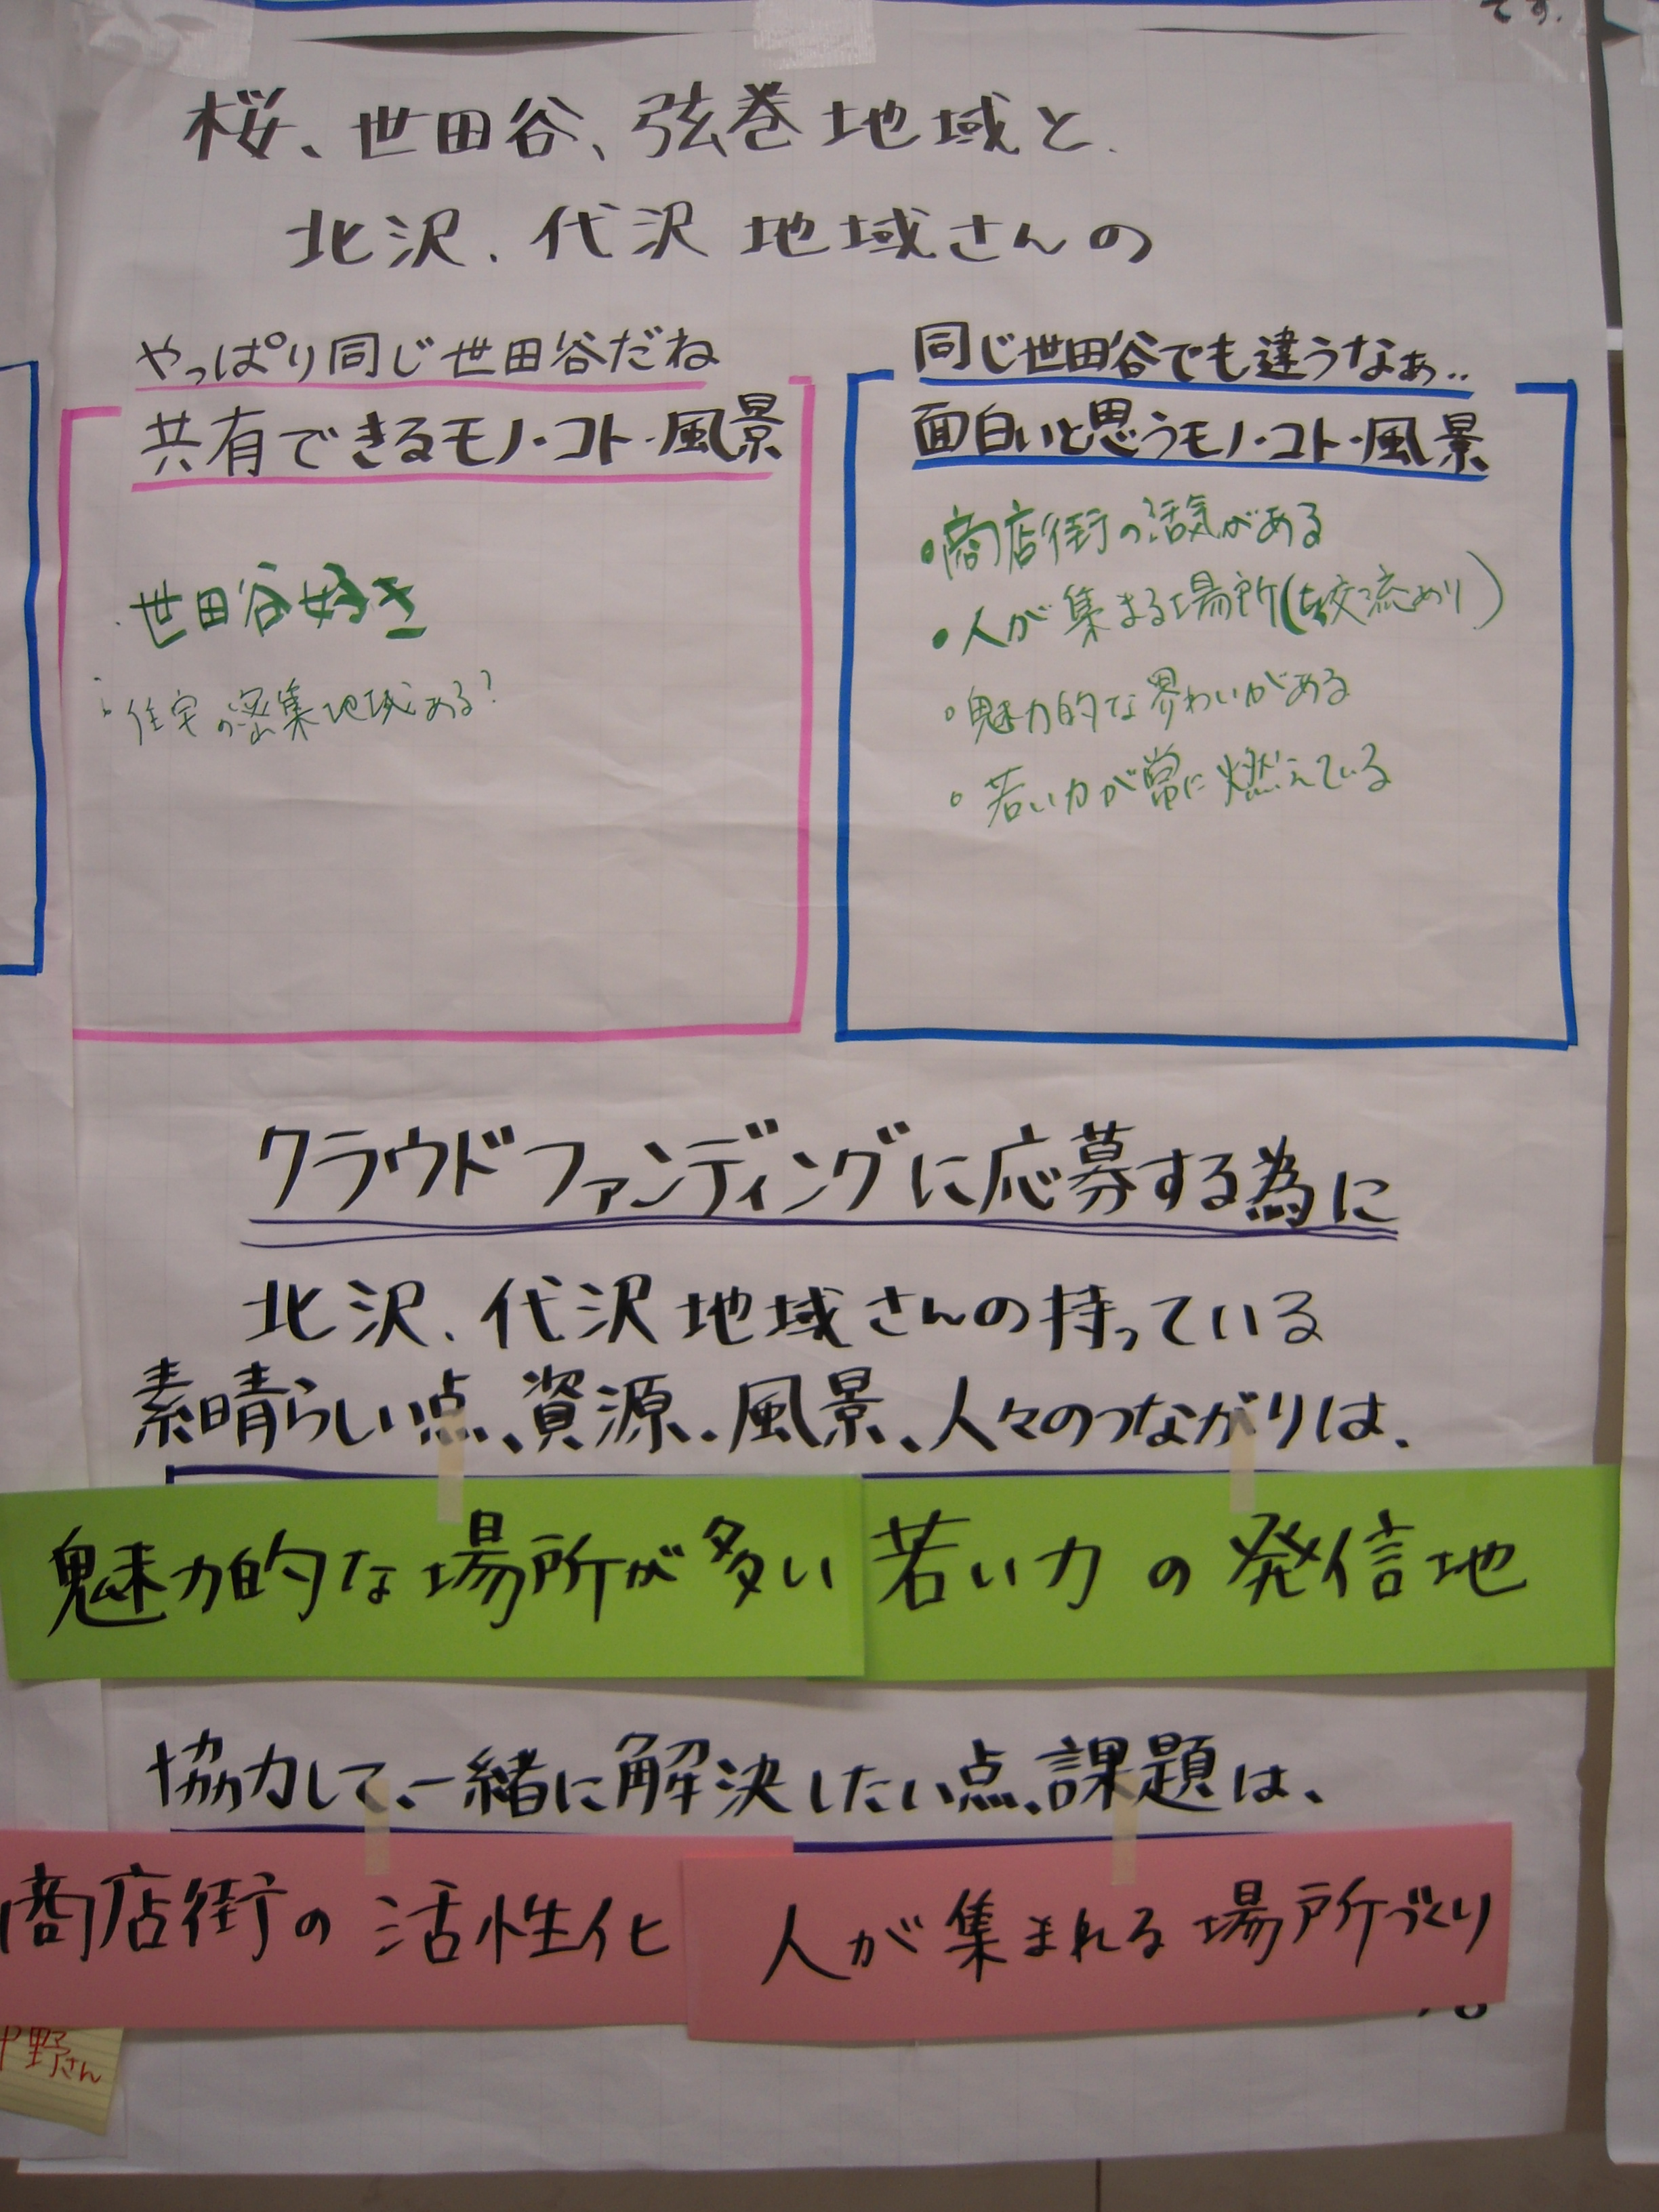 です.
桜、世田谷、弦巻地域と、
北沢、代沢地域さんの
やっぱり同じ世田谷だね
共有できるモノ・コト・風景
・世田谷好き
・住宅の密集地域ある?
同じ世田谷でも違うなぁ..
面白いと思うモノ・コト・風景
・商店街の活気がある
・人が集まる場所(交流あり)
・魅力的な界わいがある
・若い力が常に燃えている
クラウドファンディングに応募する為に
北沢、代沢地域さんの持っている
素晴らしい点、資源、風景、人々のつながりは、
魅力的な場所が多い 若い力の発信地
協力して、一緒に解決したい点、課題は、
商店街の活性化 人が集まれる場所づくり
中野さん